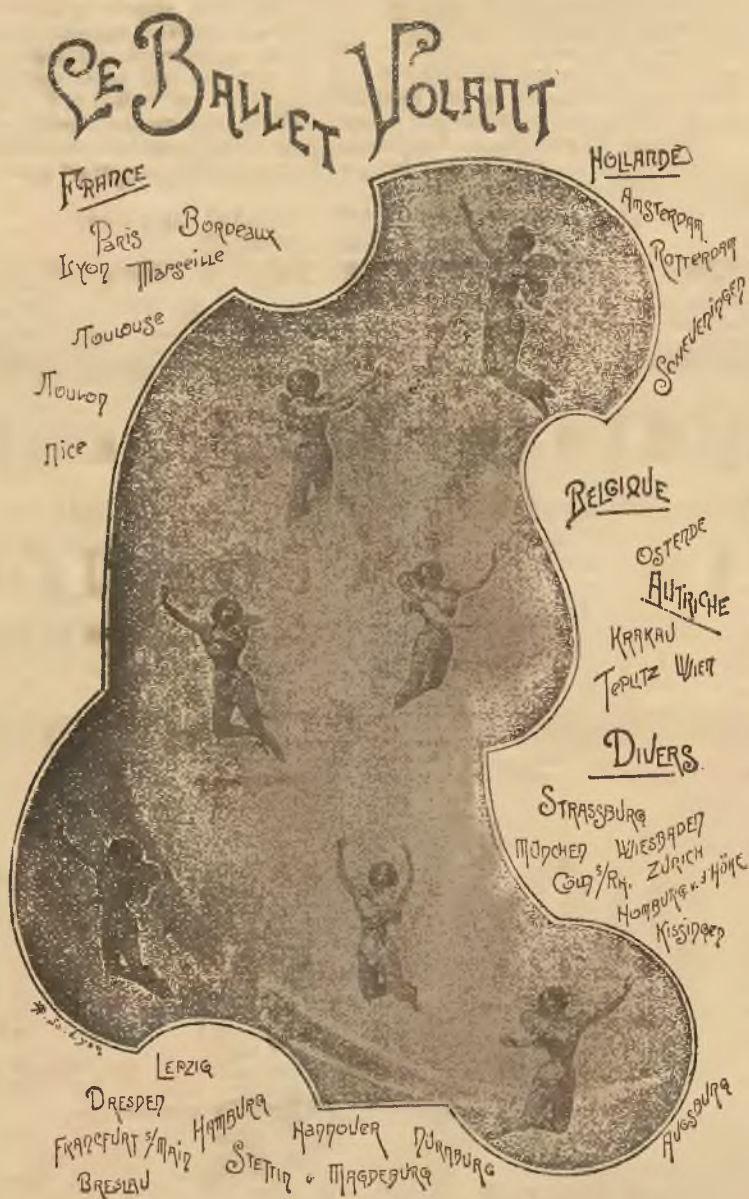 Le Ballet Volant
France
Paris Bordeaux
Lyon Marseille
Toulouse
Toulon
Nice
Hollande
Amsterdam
Rotterdam
Scheveningen
Belgique
Ostende
Autriche
Krakau
Teplitz Wien
Divers
Strassburg
München Wiesbaden
Cöln s/Rh. Zürich
Homburg v. d'Höhe
Kissingen
Leipzig
Dresden
Francfurt s/Main Hamburg Hannover Nürnburg Augsburg
Breslau Stettin Magdeburg